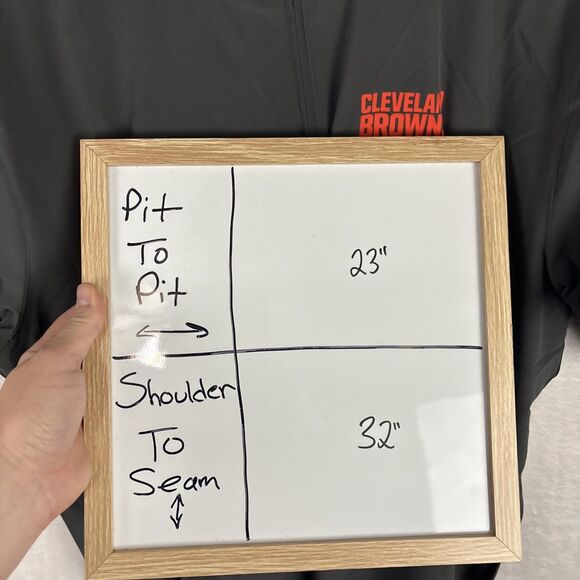 CLEVELA
BROWN
Pit
To
Pit
23"
Shoulder
To
Seam
32"